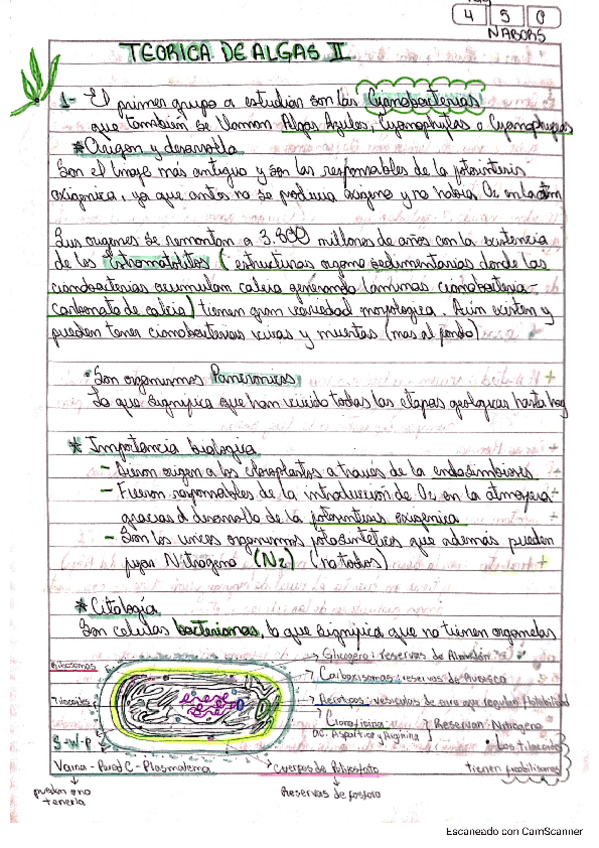 4 5 0
NABORS
TEORICA DE ALGAS II
1- El primer grupo a estudiar son las Cianobacterias
que también se llaman Algas Azules, Cyanophytas o Cyanophyceas
* Origen y desarrollo
Son el linaje más antiguo y son las responsables de la fotosíntesis
oxigenica, ya que antes no se producia oxigeno y no habia O2 en la atm
Sus origenes se remontan a 3.800 millones de años con la existencia
de los Estromatolitos (estructuras organo sedimentarias donde las
cianobacterias acumulan calcio generando laminas cianobacteria-
carbonato de calcio) tienen gran variedad morfologica. Aún existen y
pueden tener cianobacterias vivas y muertas (mas al fondo)
• Son organismos Pancronicos
Lo que significa que han vivido todas las etapas geologicas hasta hoy
* Importancia biologica
- Dieron origen a los cloroplastos a través de la endosimbiosis
- Fueron responsables de la introducción de O2 en la atmosfera
gracias al desarrollo de la fotosintesis oxigenica
- Son los unicos organismos fotosintéticos que además pueden
fijar Nitrogeno (N2) (no todos)
* Citología
Son celulas bacterianas, lo que significa que no tienen organelas
Ribosomas
→ Glicogeno: reservas de Almidón
→ Carboxisomas: reservas de
Tilacoides
→ Aerotopos: vesiculas de aire que regulan flotabilidad
→ Cianofisina:
Ac. Aspartico y Arginina
} Reservan Nitrogeno
S-W-P
• Los tilacoides
tienen ficobilisomas
Vaina - Pared C - Plasmalema
Cuerpos de Polifosfato
pueden o no
tenerla
Reservas de fosfato
Escaneado con CamScanner